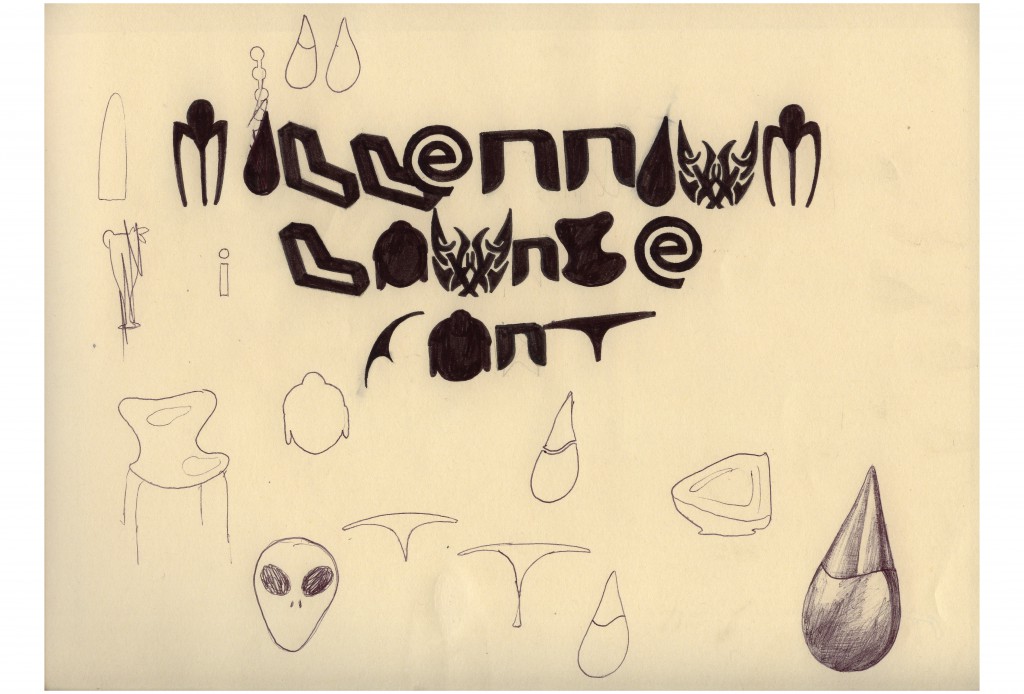 millennium
lounge
i
font